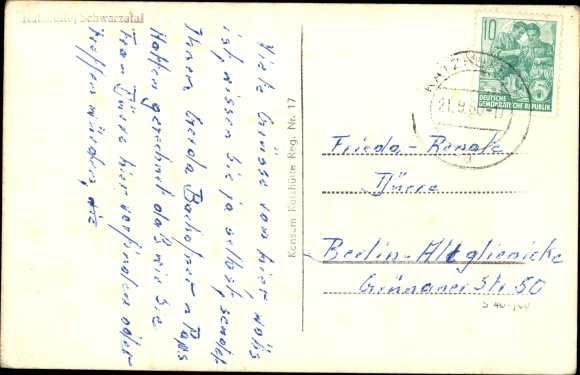 Katzhütte/Schwarzatal
Viele Grüsse von hier wo's
ist, wissen Sie ja selbst, sendet
Ihnen Gerda u Paps
Hatten gerechnet daß wir Sie
Frau Dürre hier vorfinden oder
treffen würden, die
Konsum Katzhütte Reg. Nr. 17
10
DEUTSCHE
DEMOKRATISCHE REPUBLIK
KATZHÜTTE
21.9.
Frieda-Renate
Dürre
Berlin-Altglienicke
Grünauer Str. 50